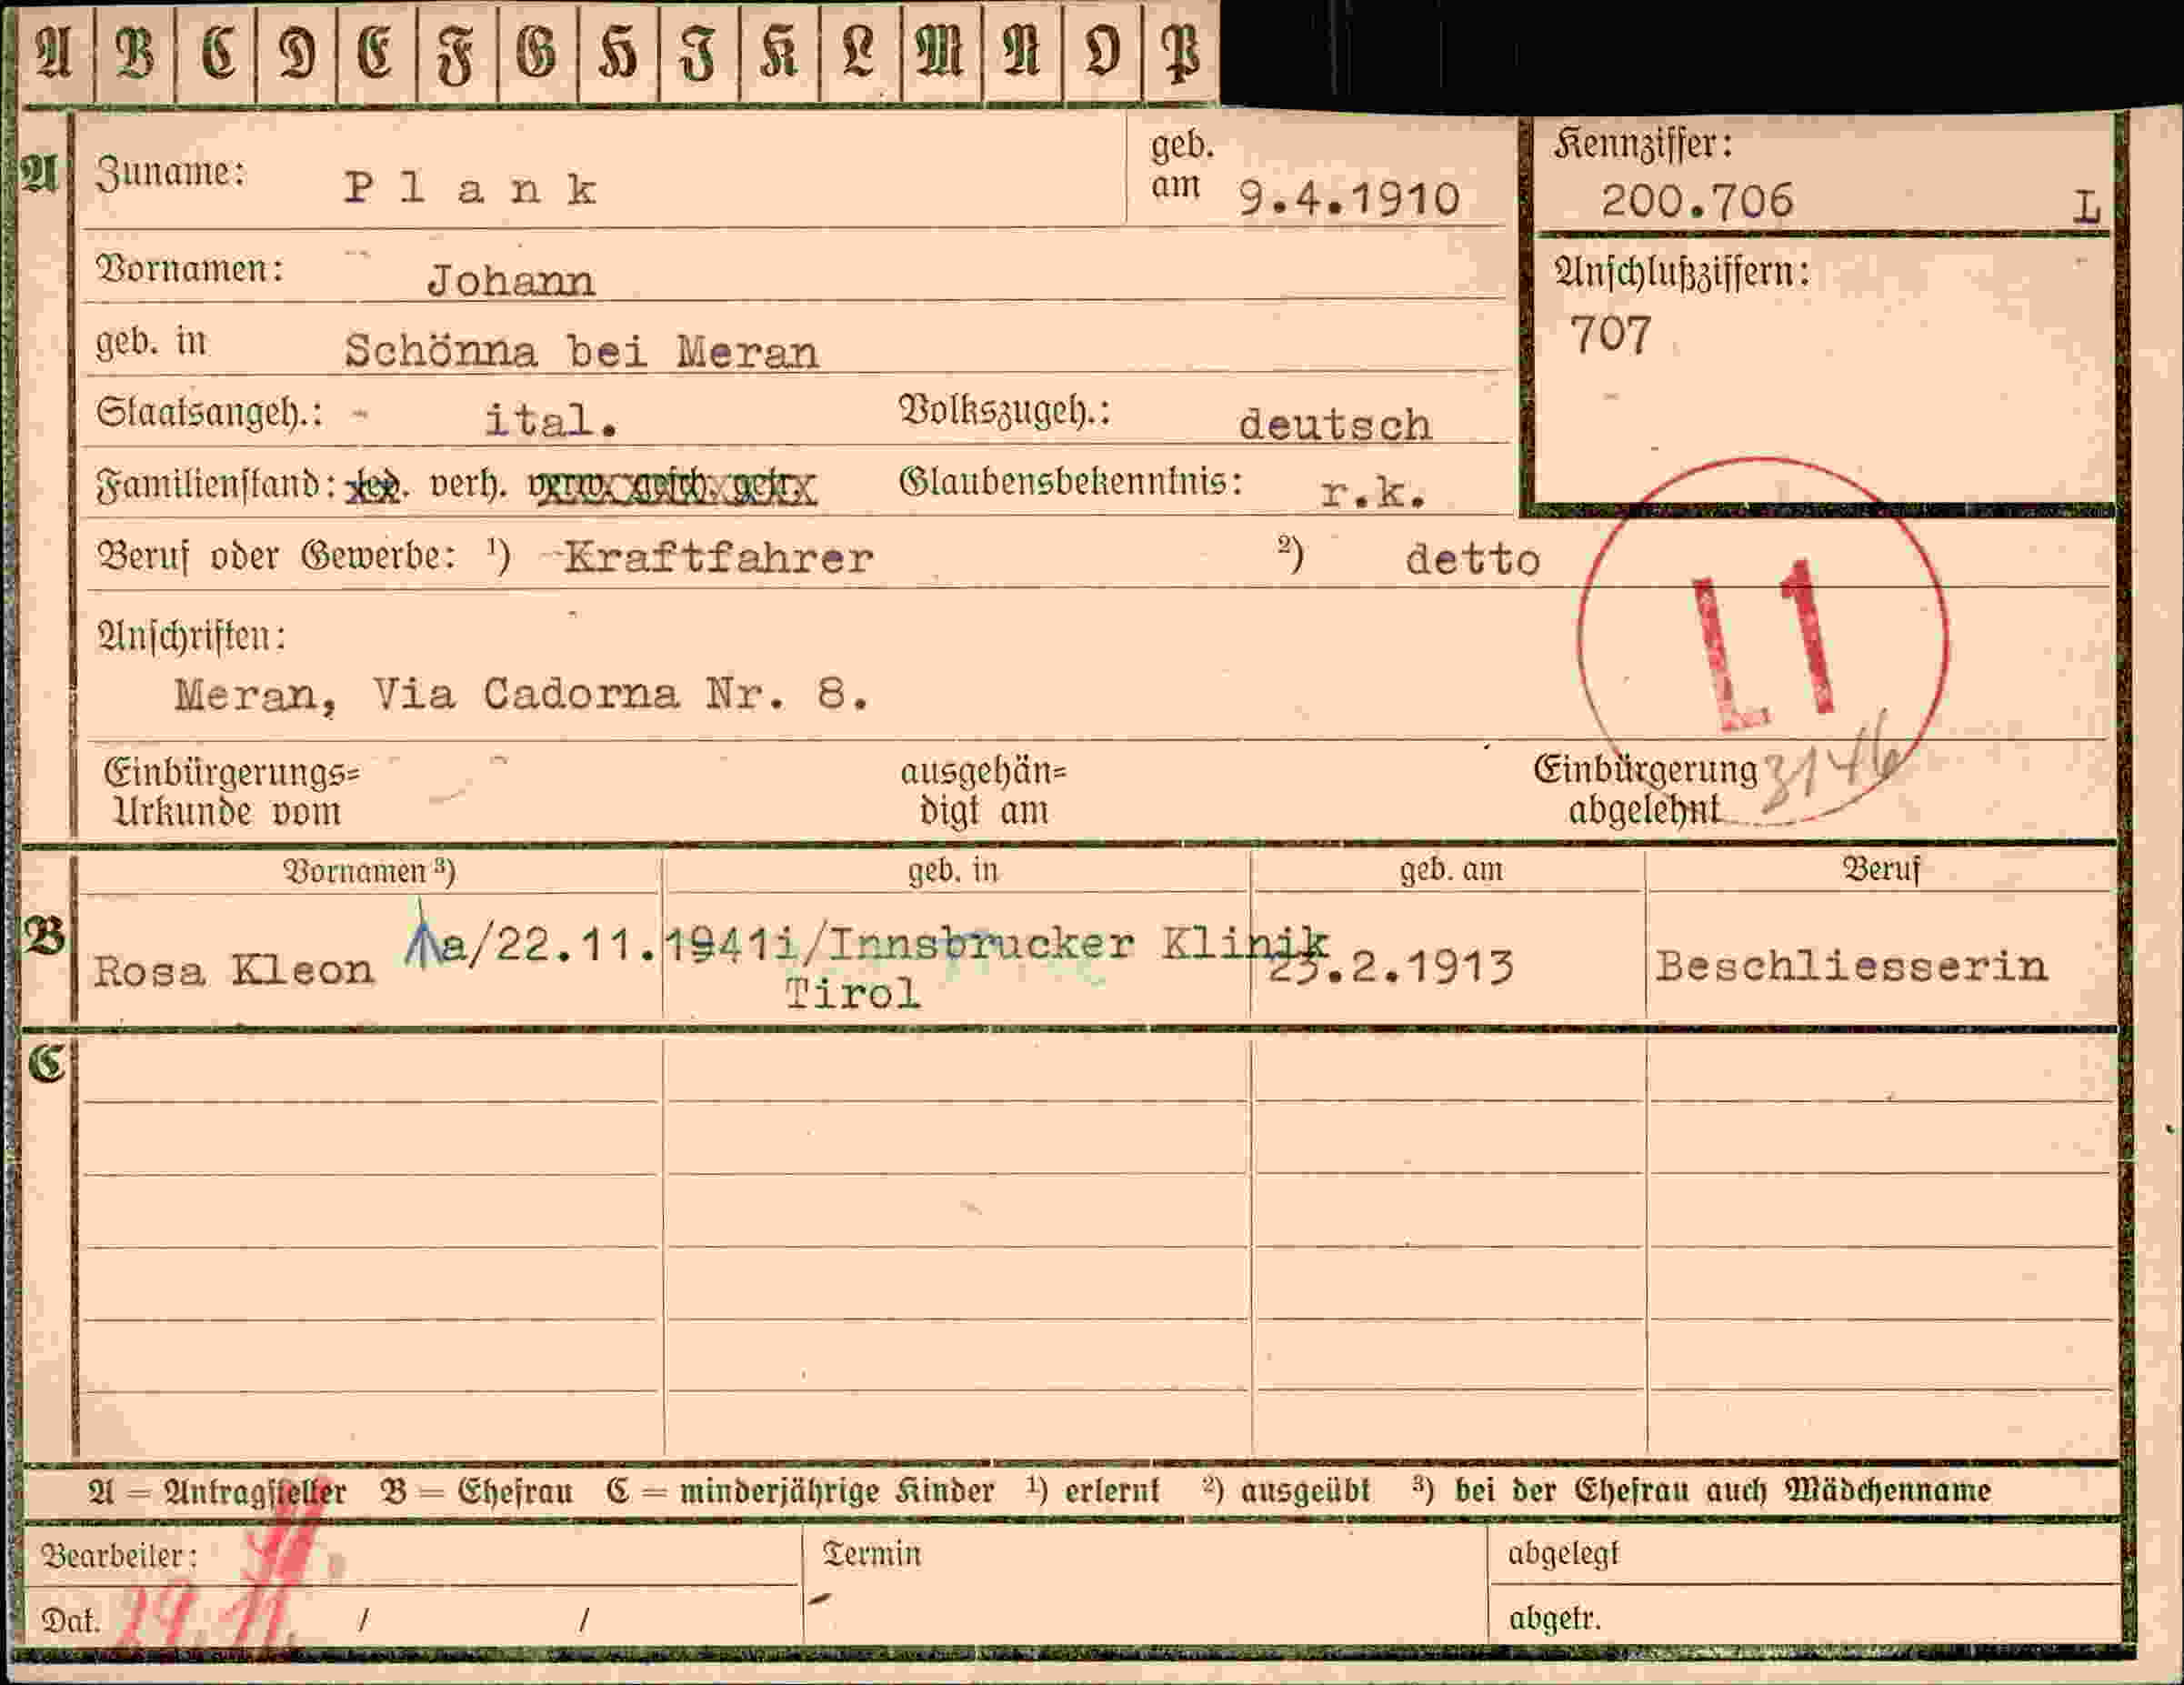 A B C D E F G H I K L M N O P
A Zuname: Plank geb. am 9.4.1910
Kennziffer: 200.706 L
Vornamen: Johann
Anschlußziffern:
707
geb. in Schönna bei Meran
Staatsangeh.: ital. Volkszugeh.: deutsch
Familienstand: led. verh. verw. gesch. getr. Glaubensbekenntnis: r.k.
Beruf oder Gewerbe: ¹) Kraftfahrer ²) detto
L1
Anschriften:
Meran, Via Cadorna Nr. 8.
Einbürgerungs=
Urkunde vom
ausgehän=
digt am
Einbürgerung
abgelehnt
3146
Vornamen ³) geb. in geb. am Beruf
B Rosa Kleon a/22.11.1941i/Innsbrucker Klinik 23.2.1913 Beschliesserin
Tirol
C
A = Antragsteller B = Ehefrau C = minderjährige Kinder ¹) erlernt ²) ausgeübt ³) bei der Ehefrau auch Mädchenname
Bearbeiter: Termin abgelegt
Dat. 29. 11. / / abgetr.